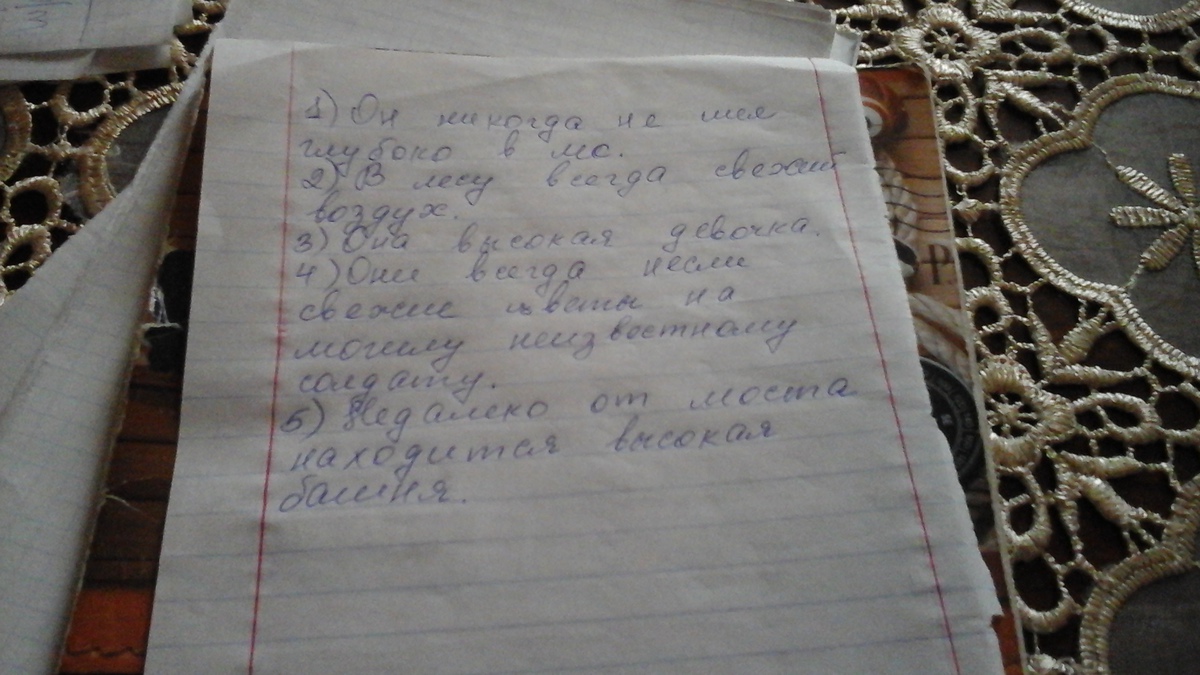 1) Он никогда не шёл
глубоко в
2) В лесу всегда свежий
воздух.
3) Она высокая девочка.
4) Они всегда несли
свежие цветы на
могилу неизвестному
солдату.
5) Недалеко от моста
находится высокая
башня.